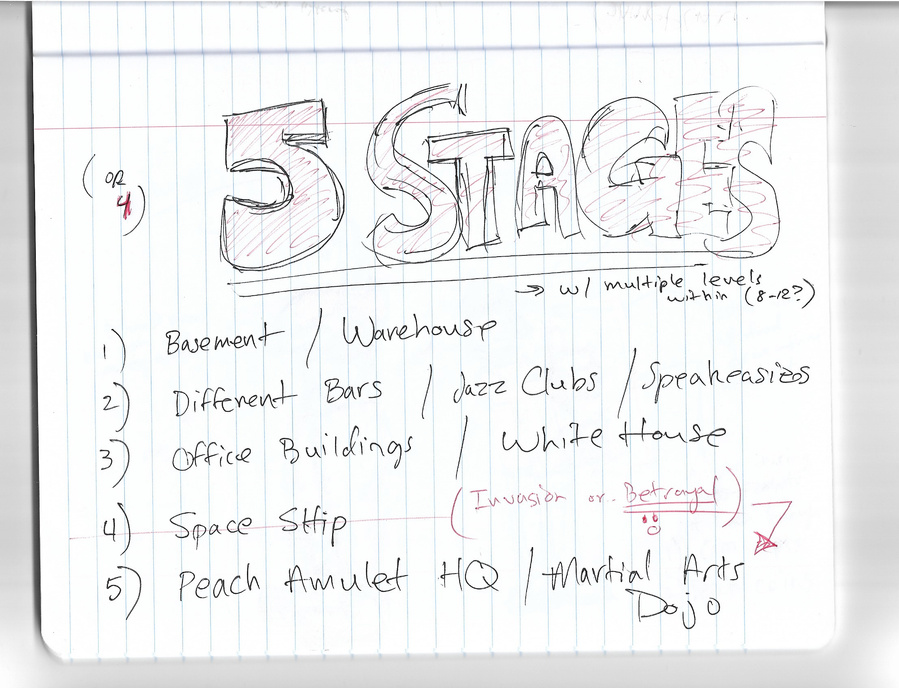 5 STAGES
(OR 4)
→ w/ multiple levels within (8-12?)
1) Basement / Warehouse
2) Different Bars / Jazz Clubs / Speakeasizes
3) Office Buildings / White House
(Invasion or Betrayal)
4) Space SHip
5) Peach Amulet HQ / Martial Arts
Dojo